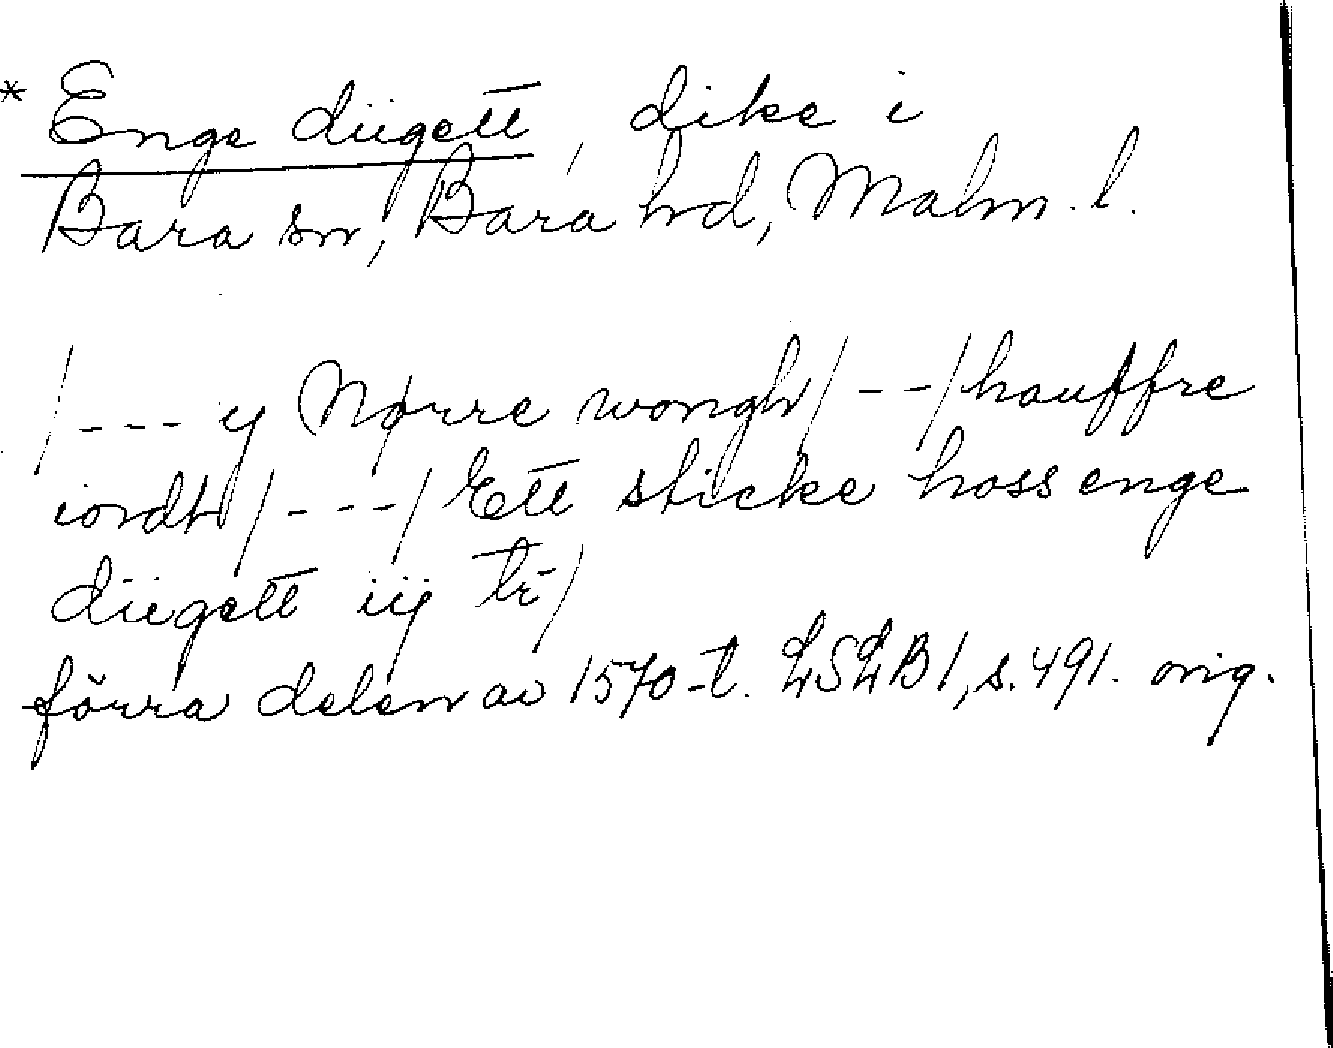 * Enge diigett, dike i
Bara sn, Bara hd, Malm. l.
/--- y Nørre wongh/ --/hauffre
iordt/---/ Ett sticke hoss enge
diigett iij tr̄/
förra delen av 1570-t. LSLB1, s. 491. orig.